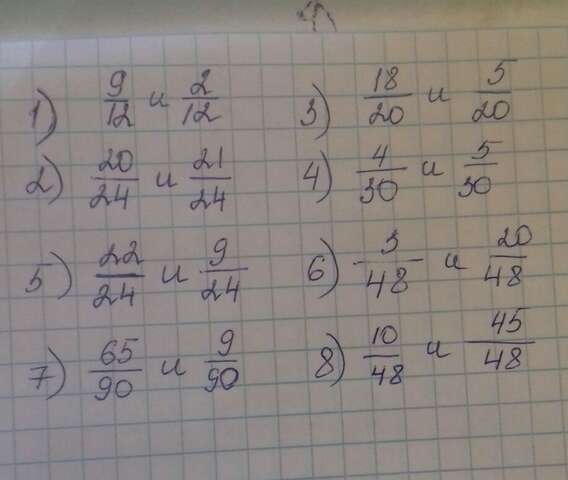 1) 9/12 и 2/12 3) 18/20 и 5/20
2) 20/24 и 21/24 4) 4/30 и 5/30
5) 22/24 и 9/24 6) 3/48 и 20/48
7) 65/90 и 9/90 8) 10/48 и 45/48